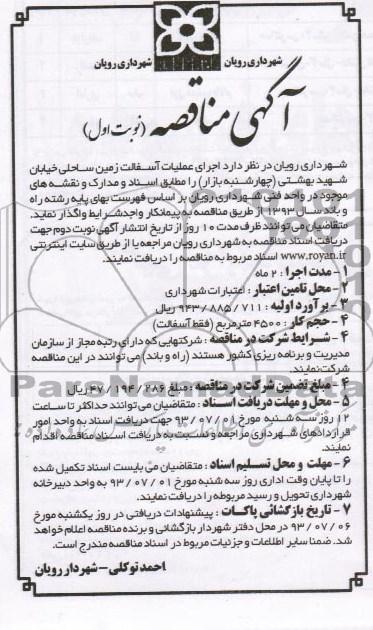 شهرداری رویان
شهرداری رویان
آگهی مناقصه (نوبت اول)
شهرداری رویان در نظر دارد اجرای عملیات آسفالت زمین ساحلی خیابان
شهید بهشتی (چهارشنبه بازار) را مطابق اسناد و مدارک و نقشه های
موجود در واحد فنی شهرداری رویان بر اساس فهرست بهای پایه رشته راه
و باند سال ۱۳۹۳ از طریق مناقصه به پیمانکار واجدشرایط واگذار نماید.
متقاضیان می توانند ظرف مدت ۱۰ روز از تاریخ انتشار آگهی نوبت دوم جهت
دریافت اسناد مناقصه به شهرداری رویان مراجعه یا از طریق سایت اینترنتی
www.royan.ir اسناد مربوط به مناقصه را دریافت نمایند.
۱- مدت اجرا : ۲ ماه
۲- محل تامین اعتبار : اعتبارات شهرداری
۳- برآورد اولیه : ۹۴۳/۸۸۵/۷۱۱ ریال
۴- حجم کار : ۴۵۰۰ مترمربع (فقط آسفالت)
۴- شرایط شرکت در مناقصه : شرکتهایی که دارای رتبه مجاز از سازمان
مدیریت و برنامه ریزی کشور هستند (راه و باند) می توانند در این مناقصه
شرکت نمایند.
۴- مبلغ تضمین شرکت در مناقصه : مبلغ ۴۷/۱۹۴/۲۸۶ ریال
۵- محل و مهلت دریافت اسناد : متقاضیان می توانند حداکثر تا ساعت
۱۲ روز سه شنبه مورخ ۹۳/۰۷/۰۱ جهت دریافت اسناد به واحد امور
قراردادهای شهرداری مراجعه و نسبت به دریافت اسناد مناقصه اقدام
نمایند.
۶- مهلت و محل تسلیم اسناد : متقاضیان می بایست اسناد تکمیل شده
را تا پایان وقت اداری روز سه شنبه مورخ ۹۳/۰۷/۰۱ به واحد دبیرخانه
شهرداری تحویل و رسید مربوطه را دریافت نمایند.
۷- تاریخ بازگشائی پاکات : پیشنهادات دریافتی در روز یکشنبه مورخ
۹۳/۰۷/۰۶ در محل دفتر شهردار بازگشائی و برنده مناقصه اعلام خواهد
شد. ضمنا سایر اطلاعات و جزئیات مربوط در اسناد مناقصه مندرج است.
احمد توکلی – شهردار رویان